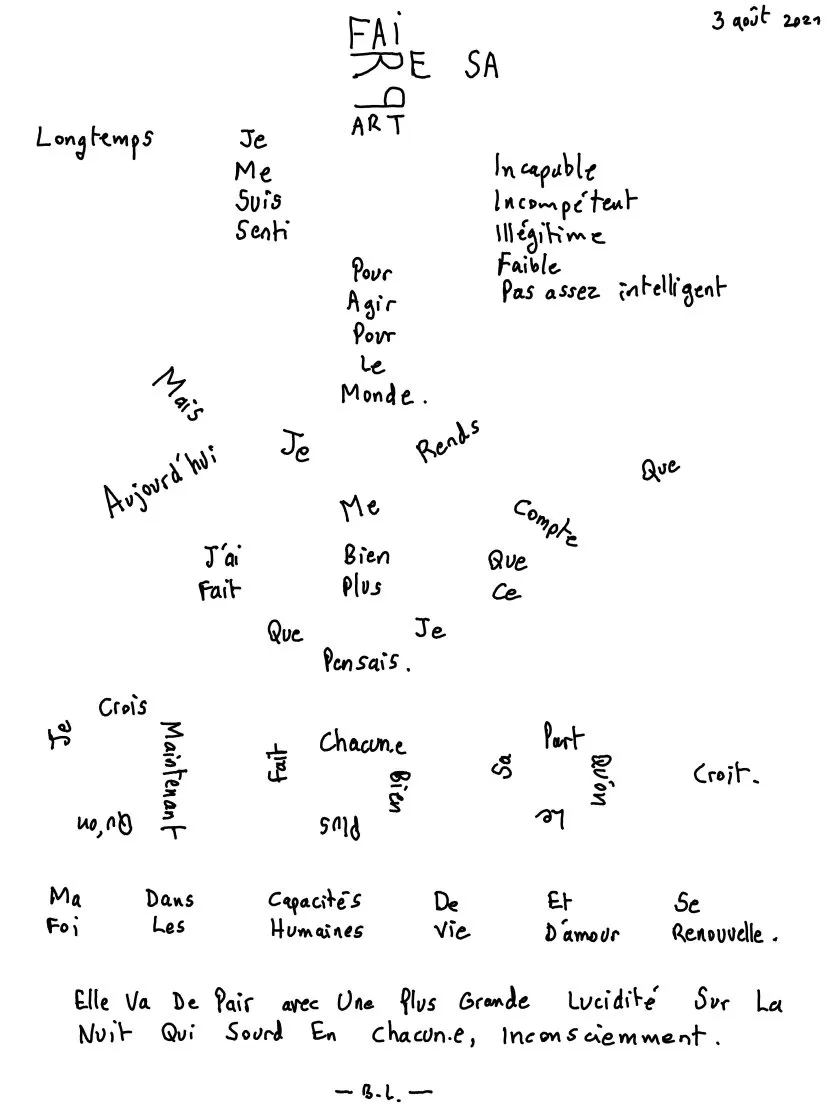 3 août 2021
FAI
RE SA
P
ART
Longtemps
Je
Me
Suis
Senti
Incapable
Incompétent
Illégitime
Faible
Pas assez intelligent
Pour
Agir
Pour
Le
Monde.
Mais
Aujourd'hui
Je
Me
Rends
Compte
Que
J'ai
Fait
Bien
Plus
Que
Ce
Que
Je
Pensais.
Je
Crois
Maintenant
Qu'on
Fait
Chacun.e
Bien
Plus
Sa
Part
Qu'on
Le
Croit.
Ma
Foi
Dans
Les
Capacités
Humaines
De
Vie
Et
D'amour
Se
Renouvelle.
Elle Va De Pair avec Une Plus Grande Lucidité Sur La
Nuit Qui Sourd En Chacun.e, Inconsciemment.
— B.L. —